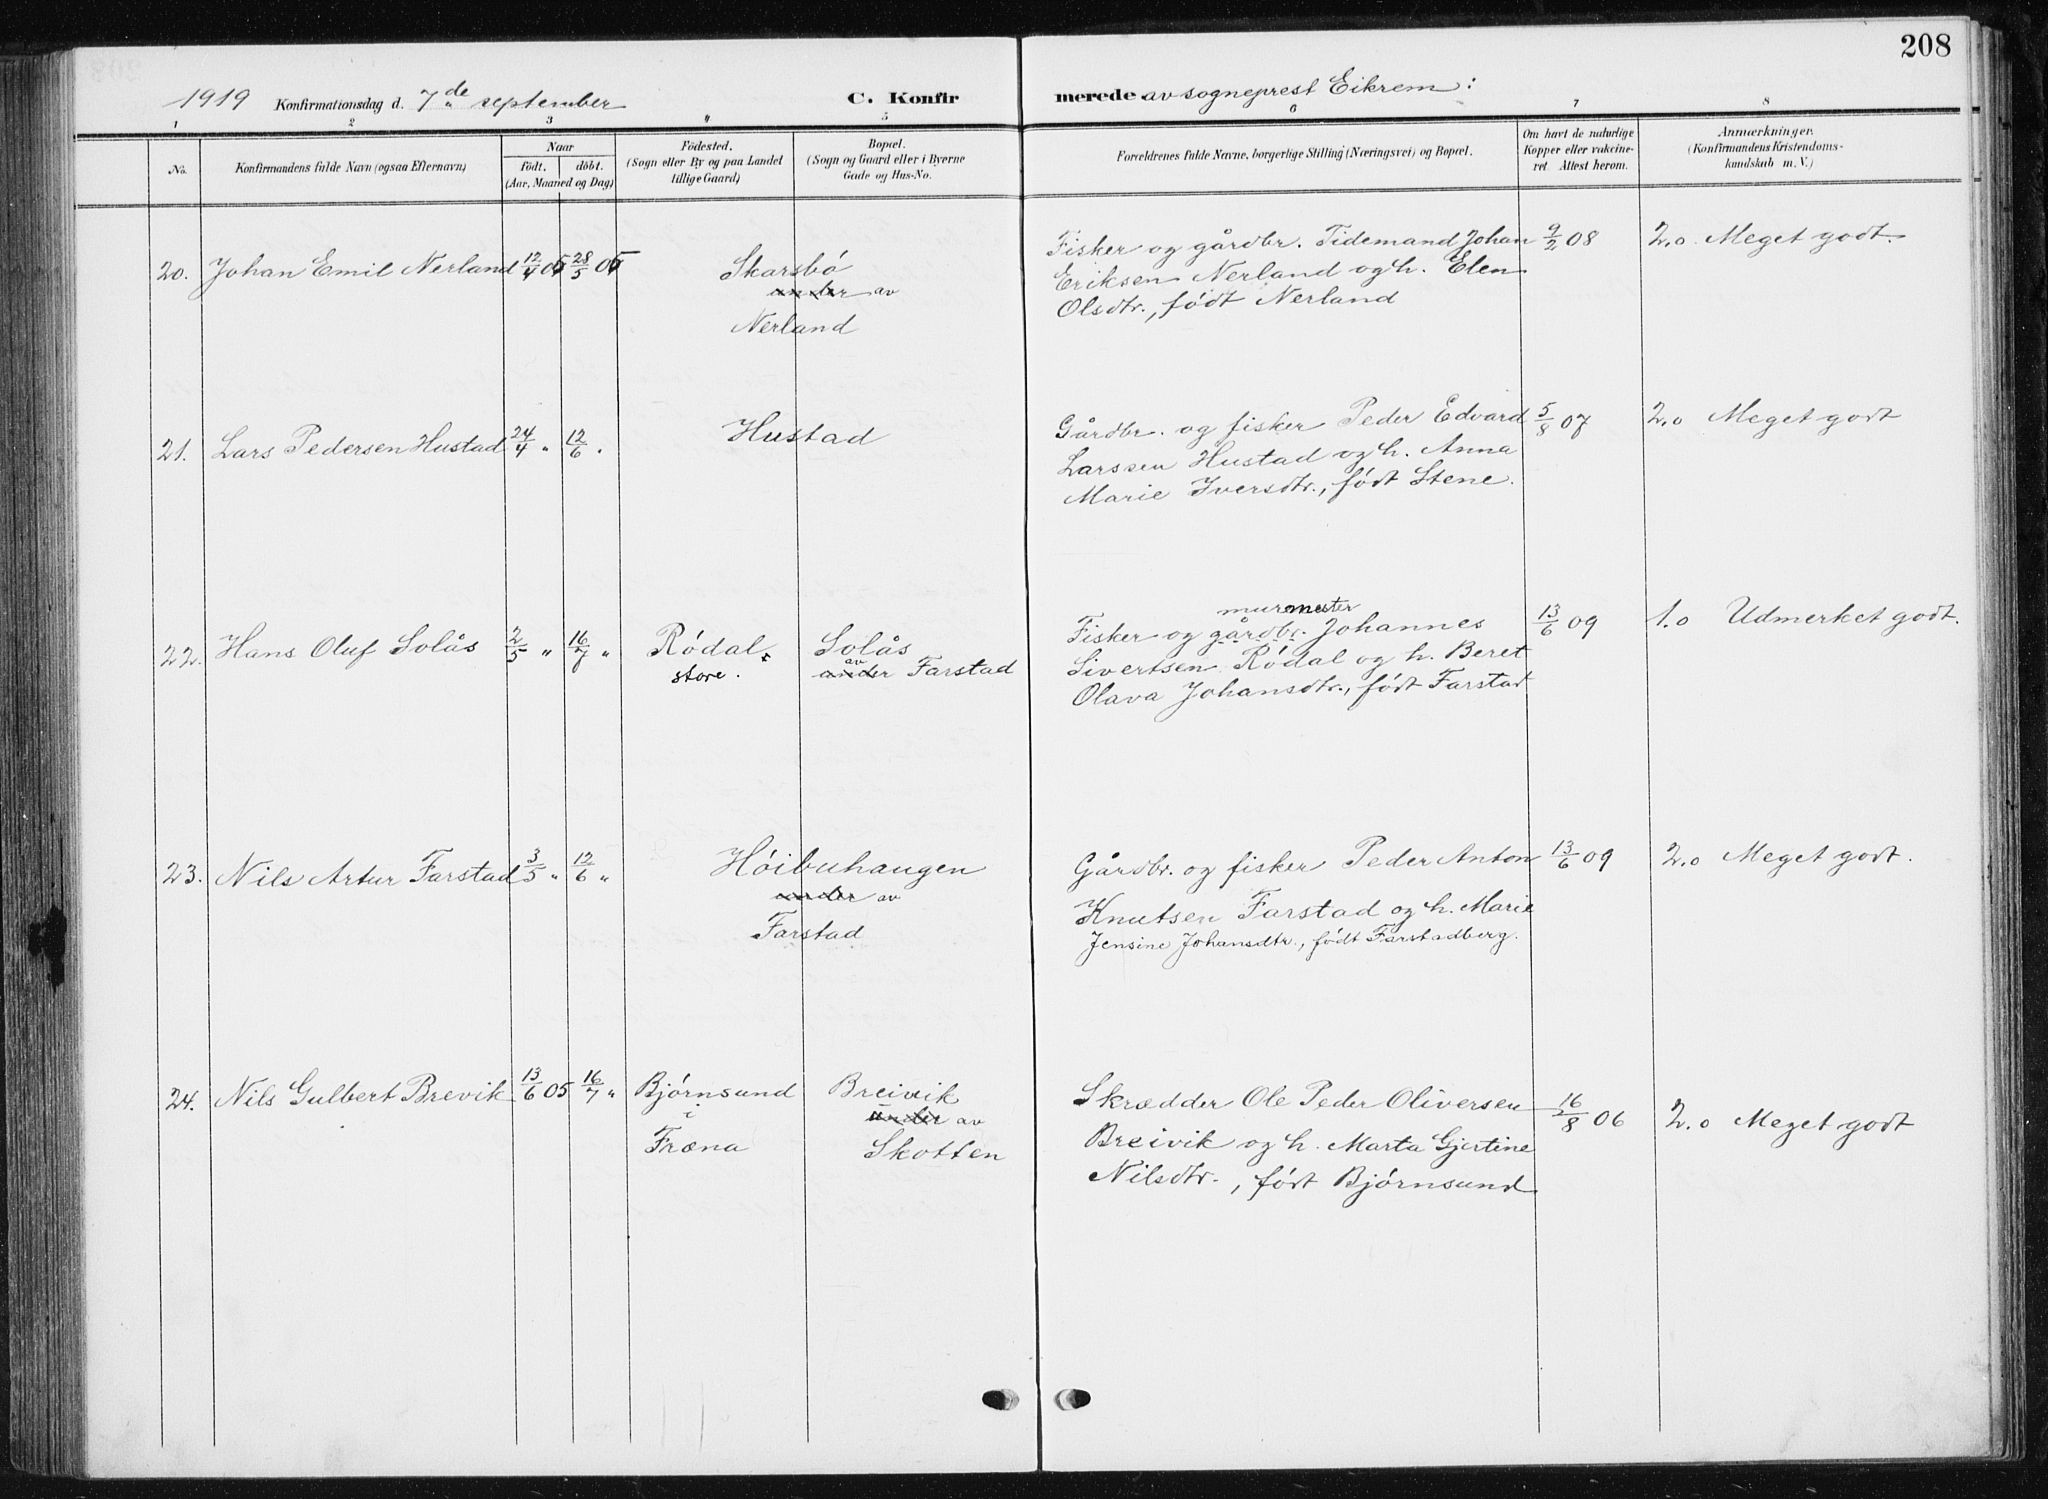 208
1919 Konfirmationsdag d. 7de september C. Konfirmerede av sogneprest Eikrem:
1 2 3 4 5 6 7 8
No. Konfirmandens fulde Navn (ogsaa Efternavn) Naar født. døbt. (Aar, Maaned og Dag) Fødested. (Sogn eller By og paa Landet tillige Gaard) Bopæl. (Sogn og Gaard eller i Byerne Gade og Hus-No. Forældrenes fulde Navne, borgerlige Stilling (Næringsvei) og Bopæl. Om havt de naturlige Kopper eller vakcineret. Attest herom. Anmærkninger. (Konfirmandens Kristendomskundskab m. V.)
20. Johan Emil Nerland 12/4 05 28/5 05 Skarsbó
under av
Nerland
Fisker og gårdbr. Tidemand Johan 9/2 08 2.0 Meget godt.
Eriksen Nerland og h. Elen
Olsdtr., født Nerland
21. Lars Pedersen Hustad 24/4 " 12/6 " Hustad
Gårdbr. og fisker Peder Edvard 5/8 07 2.0 Meget godt
Larssen Hustad og h. Anna
Marie Iversdtr., født Stene.
22. Hans Oluf Solås 2/5 " 16/7 " Ródal Solås
store. under av Farstad
murmester
Fisker og gårdbr. Johannes 13/6 09 1.0 Udmerket godt.
Sivertsen Ródal og h. Beret
Olava Johansdtr., født Farstad
23. Nils Artur Farstad 3/5 " 12/6 " Hóibuhaugen
under av
Farstad
Gårdbr. og fisker Peder Anton 13/6 09 2.0 Meget godt.
Knutsen Farstad og h. Marie
Jensine Johansdtr., født Farstadberg.
24. Nils Gulbert Brevik 13/6 05 16/7 " Bjórnsund Breivik
i under av
Fræna Skotten
Skrædder Ole Peder Oliversen 16/8 06 2.0 Meget godt
Breivik og h. Marta Gjertine
Nilsdtr., født Bjórnsund